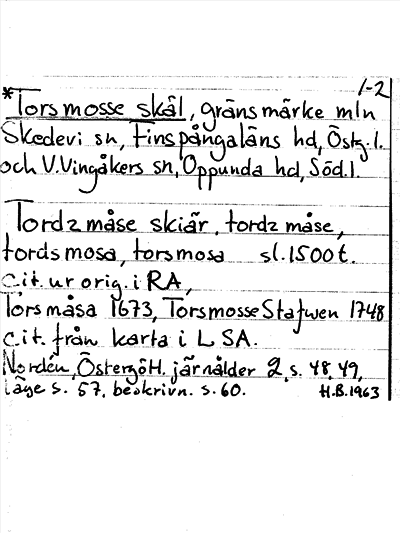 1-2
*Torsmosse skäl, gränsmärke mln
Skedevi sn, Finspångaläns hd, Östg.l.
och V.Vingåkers sn, Oppunda hd, Söd.l.
Tordz måse skiär, tordz måse,
tords mosa, torsmosa sl. 1500t.
Cit. ur orig. i RA,
Tors måsa 1673, Torsmosse Stafwen 1748
Cit. från karta i LSA.
Nordén, Östergötl. järnålder 2, s. 48, 49,
läge s. 57, beskrivn. s. 60. H.B. 1963